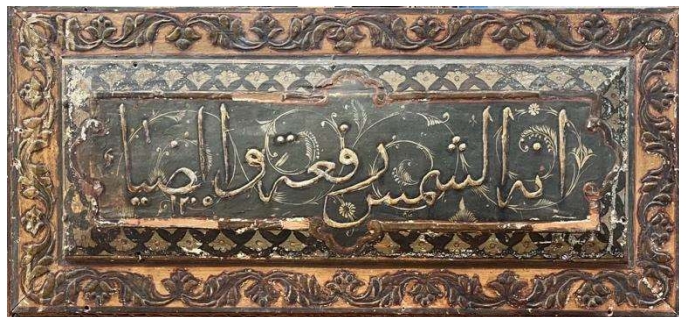 انه الشمس رفعة والضيا
١٢٠٥